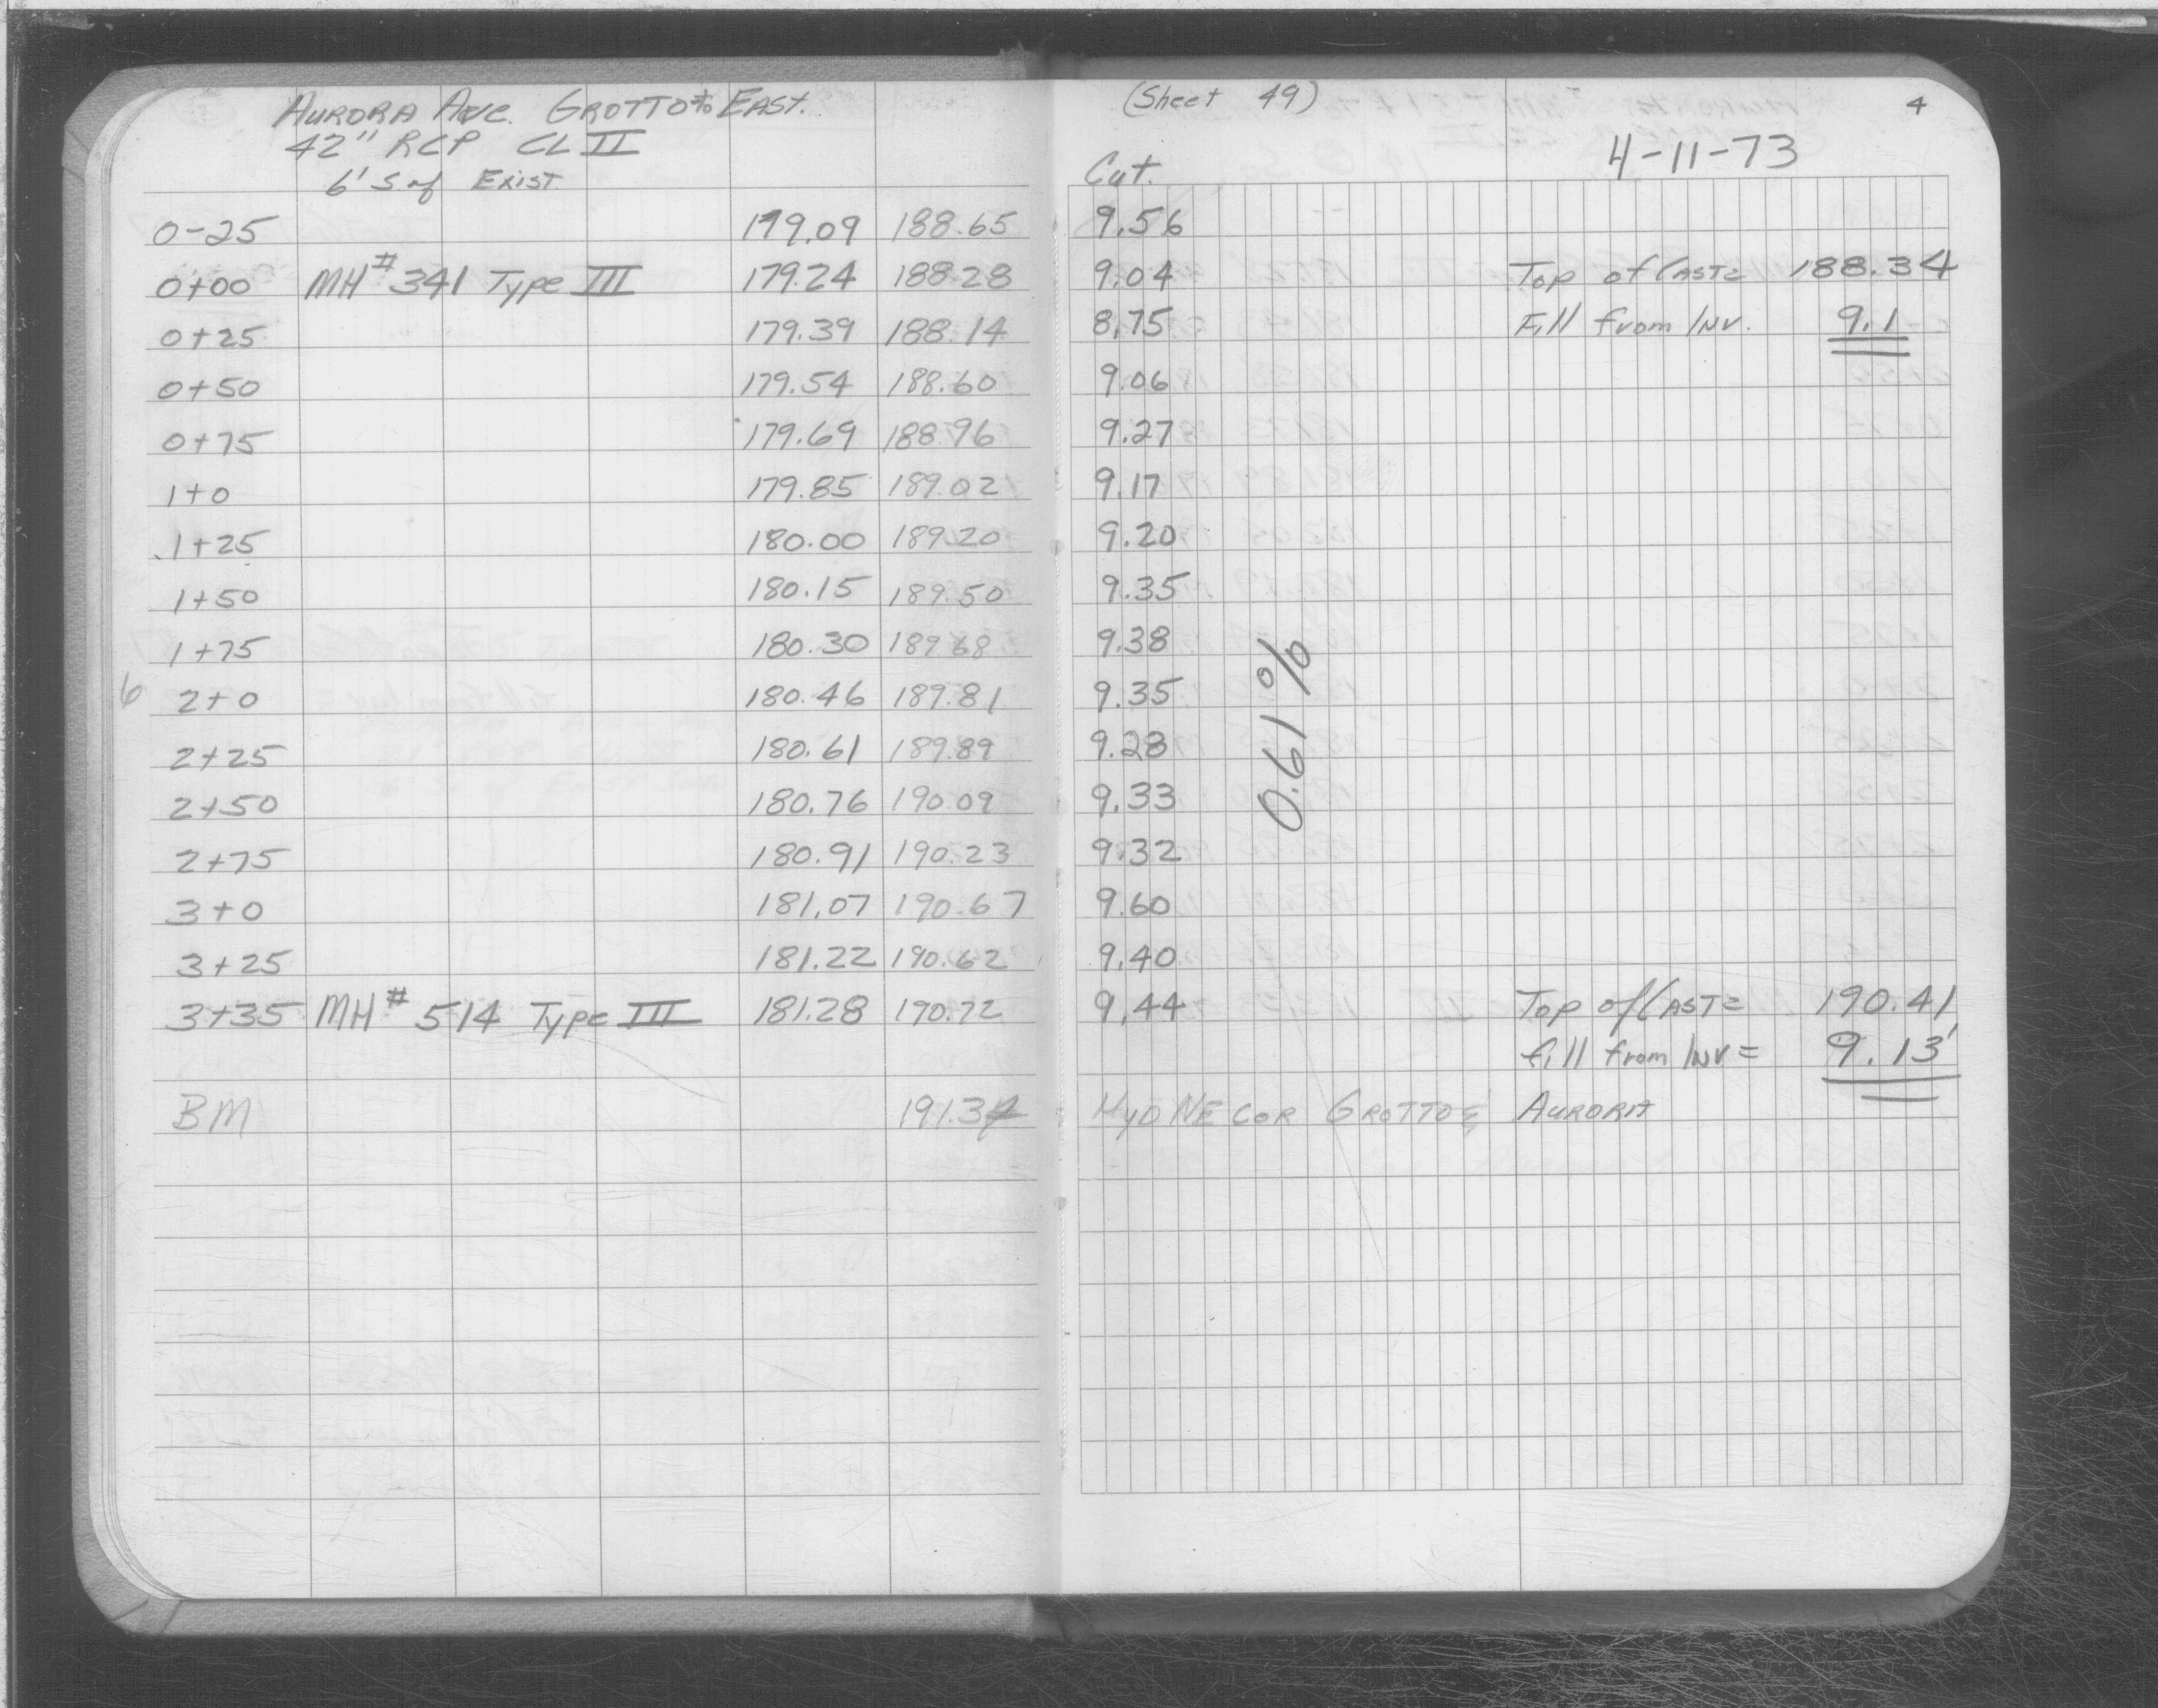 AURORA AVE. GROTTO to EAST. (Sheet 49) 4
42" RCP CL II 4-11-73
6' S of EXIST Cut.
0-25 179.09 188.65 9.56
0+00 MH# 341 Type III 179.24 188.28 9.04 Top of CAST= 188.34
0+25 179.39 188.14 8.75 Fill from INV. 9.1
0+50 179.54 188.60 9.06
0+75 179.69 188.96 9.27
1+0 179.85 189.02 9.17
1+25 180.00 189.20 9.20
1+50 180.15 189.50 9.35
1+75 180.30 189.68 9.38
6 2+0 180.46 189.81 9.35
0.61%
2+25 180.61 189.89 9.28
2+50 180.76 190.09 9.33
2+75 180.91 190.23 9.32
3+0 181.07 190.67 9.60
3+25 181.22 190.62 9.40
3+35 MH# 514 Type III 181.28 190.72 9.44 Top of CAST= 190.41
fill from INV = 9.13'
BM HYD NE COR GROTTO & AURORA